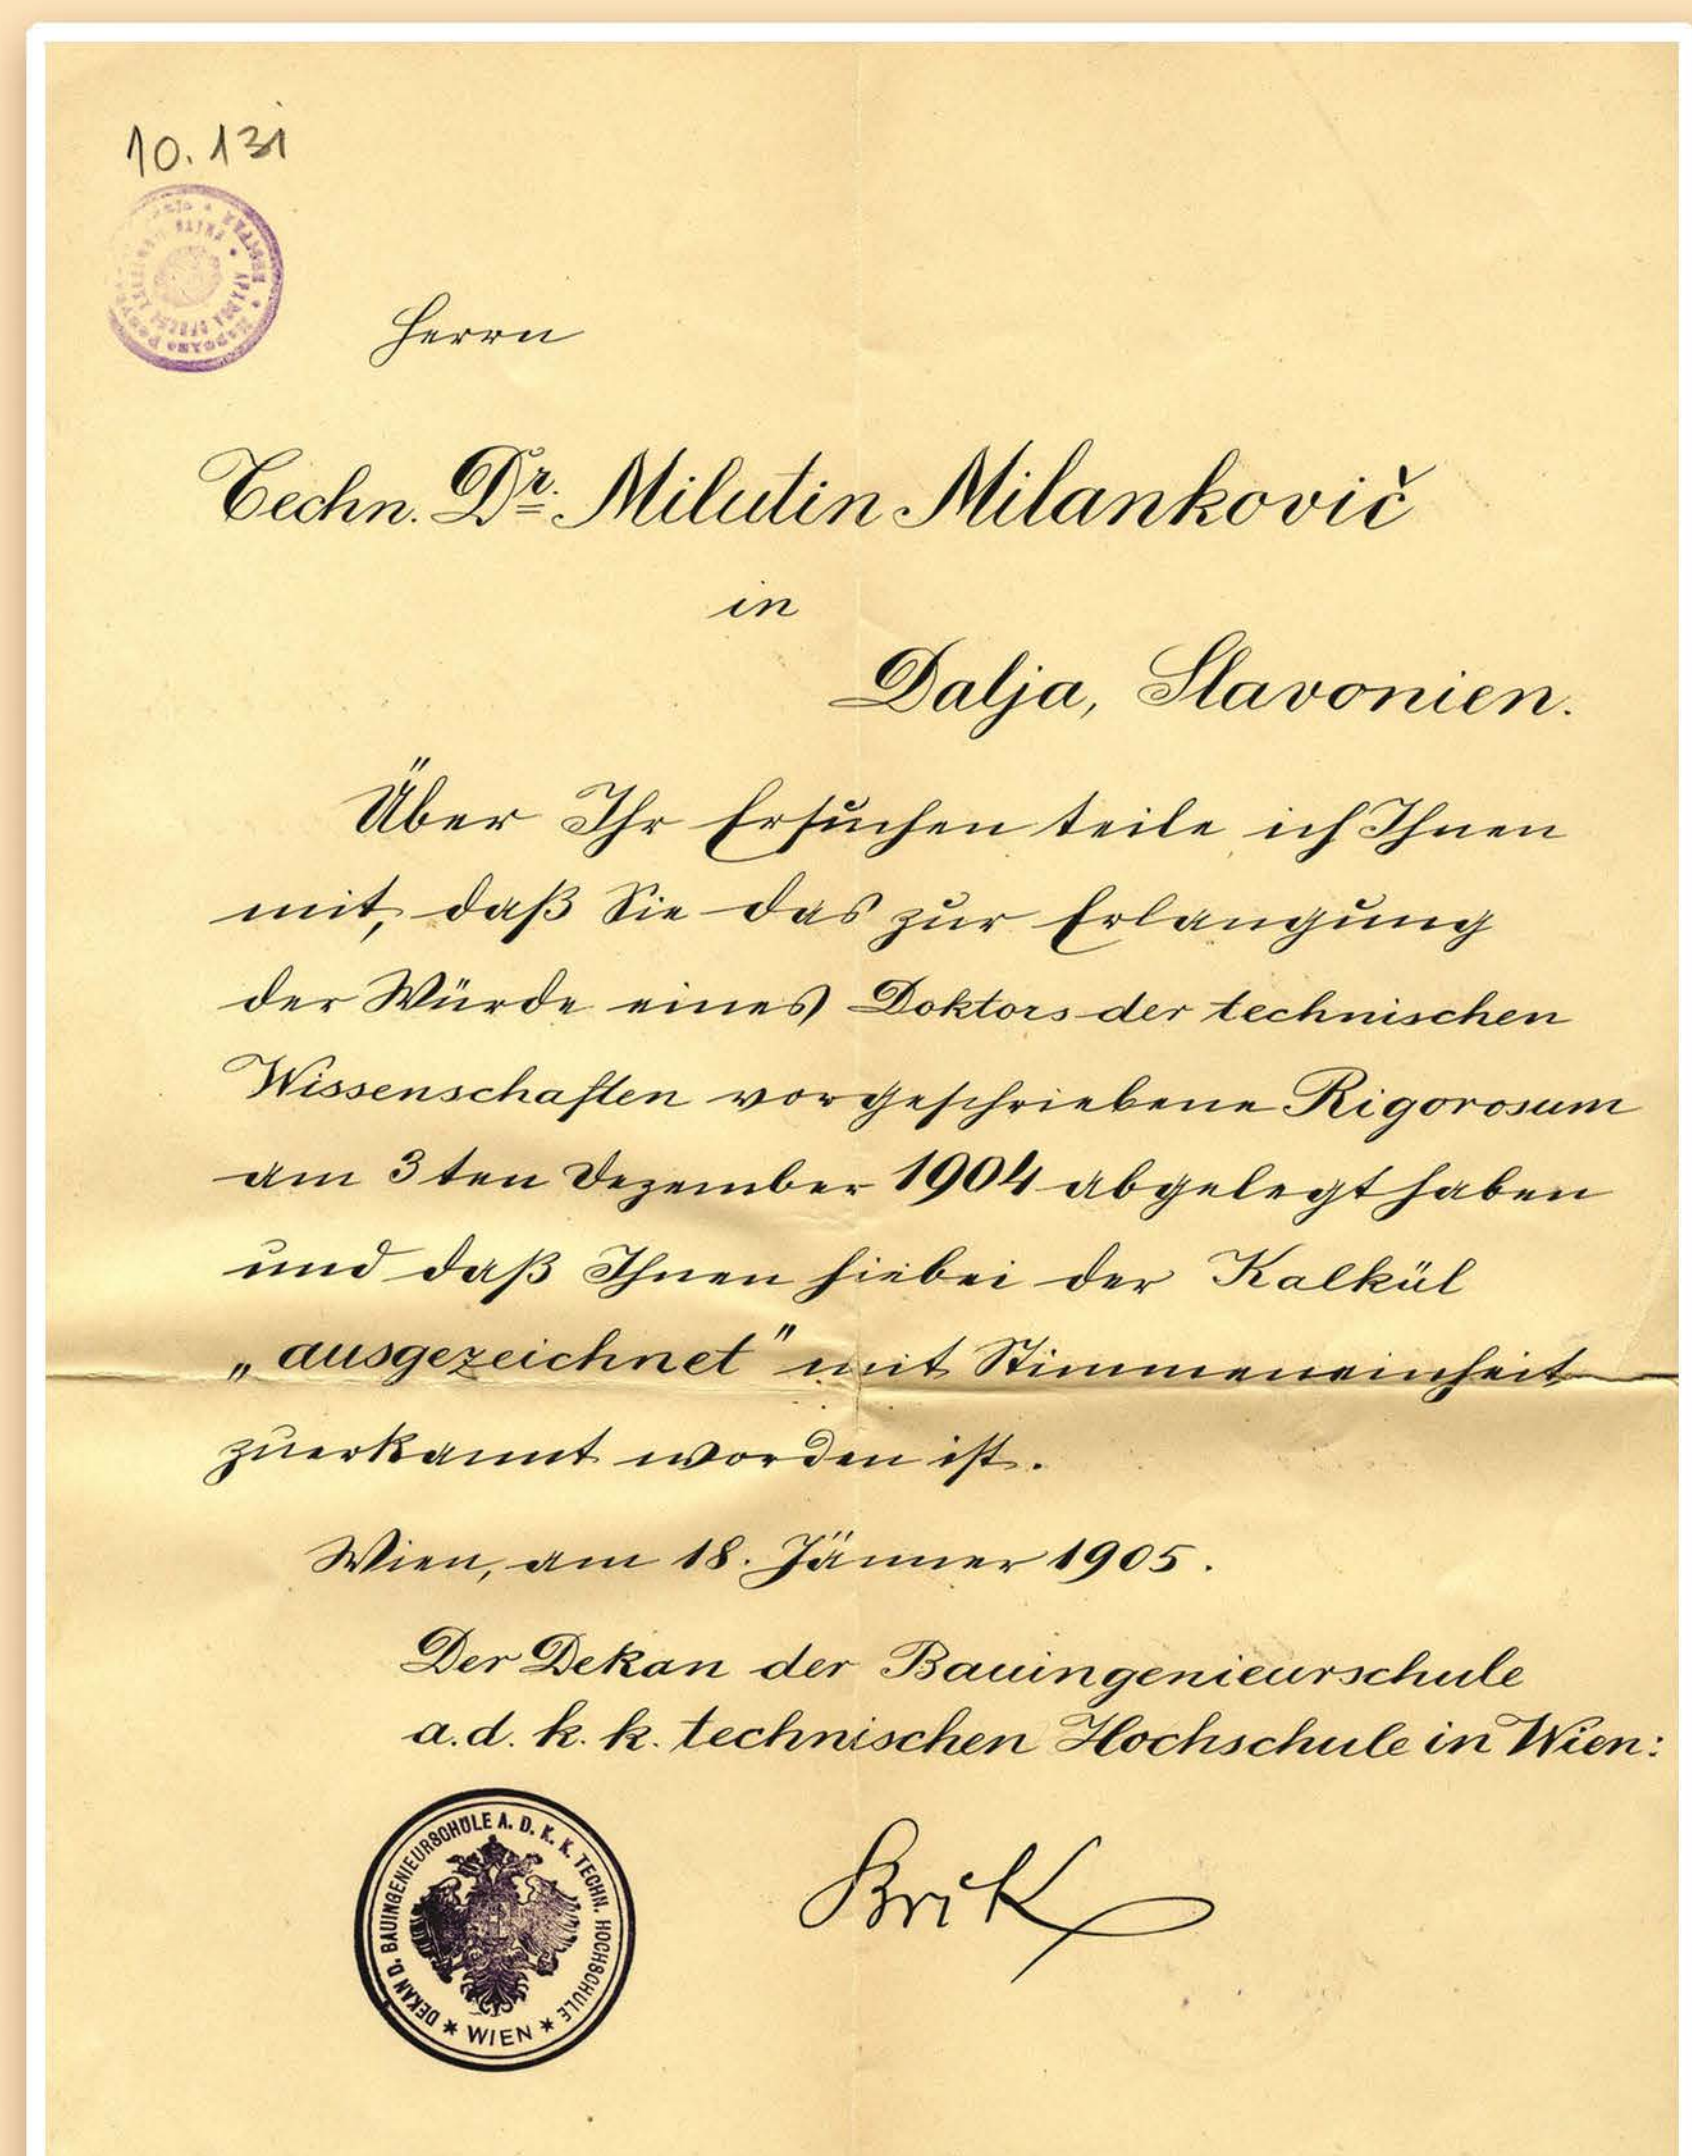 10.131
Herrn
Techn. Dr. Milutin Milankovič
in
Dalja, Slavonien.
Über Ihr Ersuchen teile ich Ihnen
mit, daß Sie das zur Erlangung
der Würde eines Doktors der technischen
Wissenschaften vorgeschriebene Rigorosum
am 3ten Dezember 1904 abgelegt haben
und daß Ihnen hiebei der Kalkül
„ausgezeichnet" mit Stimmeneinheit
zuerkannt worden ist.
Wien, am 18. Jänner 1905.
Der Dekan der Bauingenieurschule
a.d. k. k. technischen Hochschule in Wien:
Brik
DEKAN D. BAUINGENIEURSCHULE A. D. K. K. TECHN. HOCHSCHULE
* WIEN *